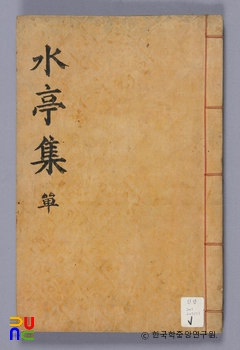 水亭集
單
PUNC
© 한국학중앙연구원